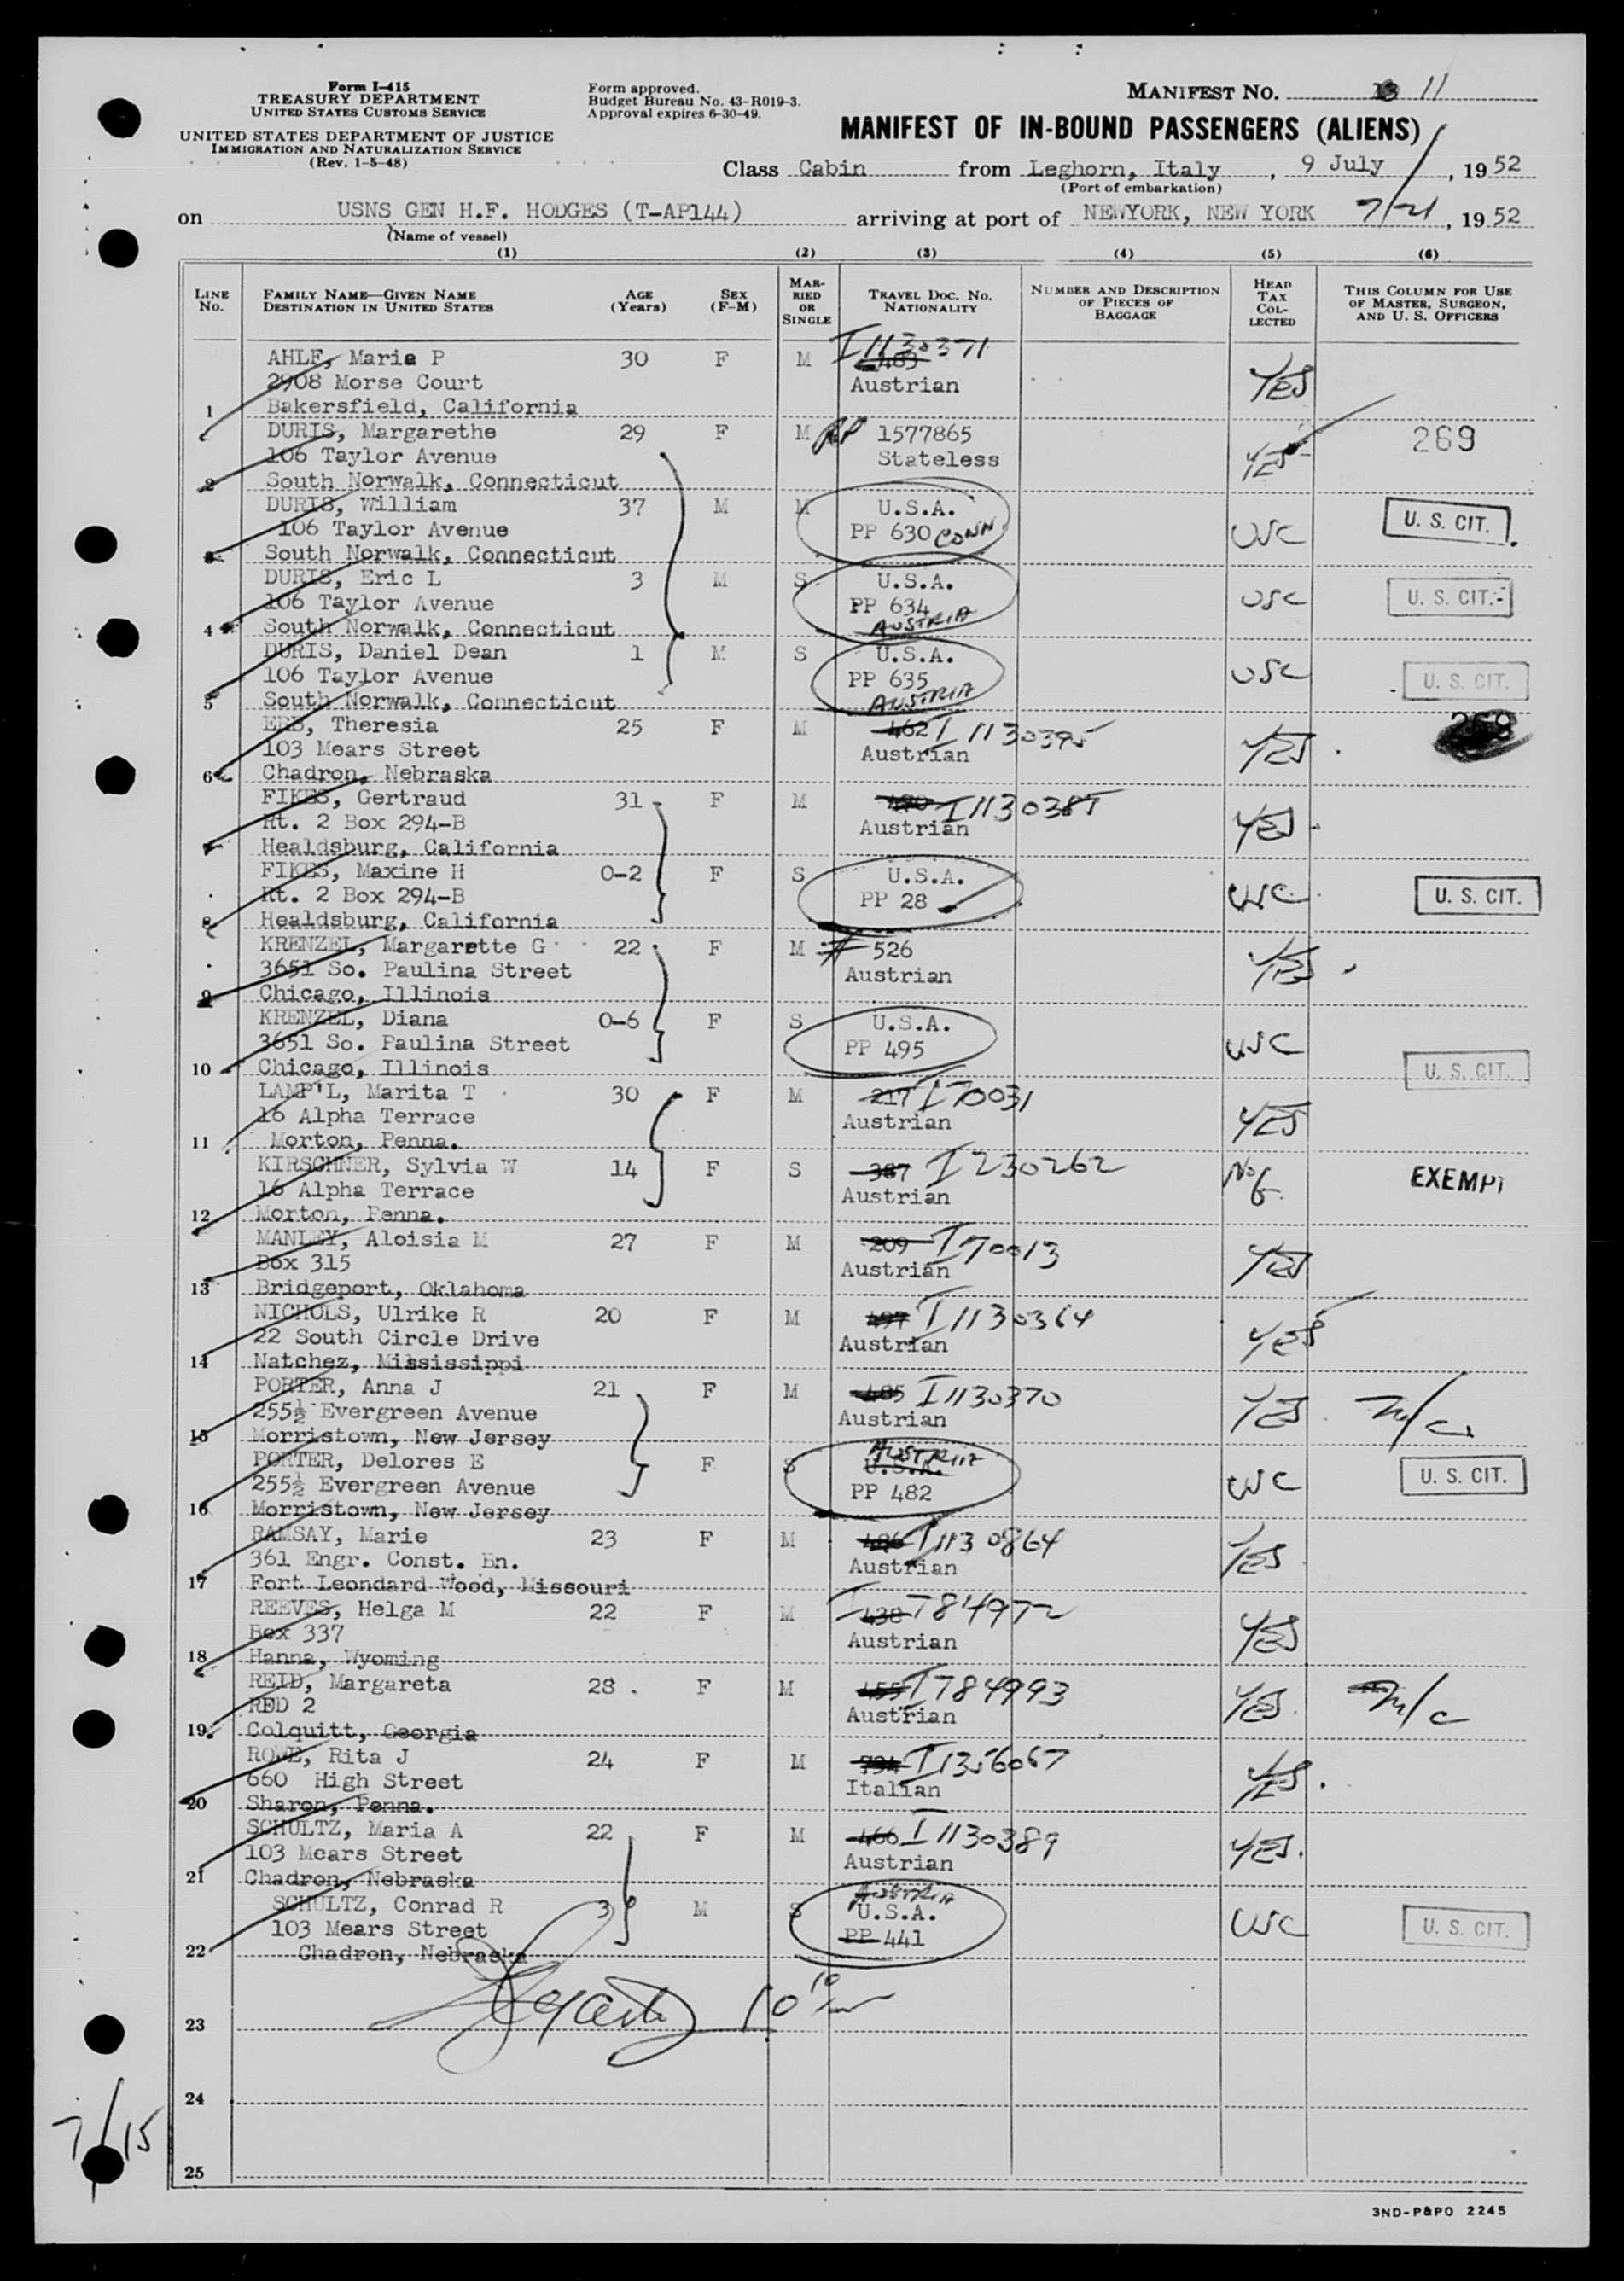 Form I-415
TREASURY DEPARTMENT
UNITED STATES CUSTOMS SERVICE
UNITED STATES DEPARTMENT OF JUSTICE
IMMIGRATION AND NATURALIZATION SERVICE
(Rev. 1-5-48)
Form approved.
Budget Bureau No. 43-R019-3.
Approval expires 6-30-49.
MANIFEST NO. 11
MANIFEST OF IN-BOUND PASSENGERS (ALIENS)
Class Cabin from Leghorn, Italy, 9 July, 1952
(Port of embarkation)
on USNS GEN H.F. HODGES (T-AP144) arriving at port of NEWYORK, NEW YORK 7/21, 1952
(Name of vessel)
(1) (2) (3) (4) (5) (6)
LINE No.
FAMILY NAME—GIVEN NAME
DESTINATION IN UNITED STATES
AGE (Years)
SEX (F-M)
MARRIED OR SINGLE
TRAVEL DOC. NO.
NATIONALITY
NUMBER AND DESCRIPTION OF PIECES OF BAGGAGE
HEAD TAX COLLECTED
THIS COLUMN FOR USE OF MASTER, SURGEON, AND U. S. OFFICERS
AHLF, Maria P 30 F M I1130371
2908 Morse Court Austrian YES
1 Bakersfield, California
DURIS, Margarethe 29 F M RP 1577865 269
106 Taylor Avenue Stateless YES
2 South Norwalk, Connecticut
DURIS, William 37 M M U.S.A. U. S. CIT.
106 Taylor Avenue PP 630 CONN USC
3 South Norwalk, Connecticut
DURIS, Eric L 3 M S U.S.A.
106 Taylor Avenue PP 634 USC U. S. CIT.
4 South Norwalk, Connecticut AUSTRIA
DURIS, Daniel Dean 1 M S U.S.A.
106 Taylor Avenue PP 635 USC U. S. CIT.
5 South Norwalk, Connecticut AUSTRIA
ERB, Theresia 25 F M 462 I 1130395
103 Mears Street Austrian YES
6 Chadron, Nebraska
FIKES, Gertraud 31 F M I1130385
Rt. 2 Box 294-B Austrian YES
7 Healdsburg, California
FIKES, Maxine H 0-2 F S U.S.A.
Rt. 2 Box 294-B PP 28 USC U. S. CIT.
8 Healdsburg, California
KRENZEL, Margarette G 22 F M # 526
3651 So. Paulina Street Austrian YES
9 Chicago, Illinois
KRENZEL, Diana 0-6 F S U.S.A.
3651 So. Paulina Street PP 495 USC
10 Chicago, Illinois U. S. CIT.
LAMP'L, Marita T 30 F M 217 I70031
16 Alpha Terrace Austrian YES
11 Morton, Penna.
KIRSCHNER, Sylvia W 14 F S 387 I230262 No
16 Alpha Terrace Austrian EXEMPT
12 Morton, Penna.
MANLEY, Aloisia M 27 F M 209 I70013
Box 315 Austrian YES
13 Bridgeport, Oklahoma
NICHOLS, Ulrike R 20 F M I1130364
22 South Circle Drive Austrian YES
14 Natchez, Mississippi
PORTER, Anna J 21 F M 485 I1130370
255½ Evergreen Avenue Austrian YES m/c
15 Morristown, New Jersey
PORTER, Delores E F S AUSTRIA U.S.A.
255½ Evergreen Avenue PP 482 USC U. S. CIT.
16 Morristown, New Jersey
RAMSAY, Marie 23 F M 486 I1130864
361 Engr. Const. Bn. Austrian YES
17 Fort Leondard Wood, Missouri
REEVES, Helga M 22 F M 438 I784972
Box 337 Austrian YES
18 Hanna, Wyoming
REID, Margareta 28 F M 455 I784993
RED 2 Austrian YES m/c
19 Colquitt, Georgia
ROWE, Rita J 24 F M I1356067
660 High Street Italian YES
20 Sharon, Penna.
SCHULTZ, Maria A 22 F M 466 I1130389
103 Mears Street Austrian YES
21 Chadron, Nebraska
SCHULTZ, Conrad R 3 M S AUSTRIA U.S.A.
103 Mears Street PP 441 USC U. S. CIT.
22 Chadron, Nebraska
23
24
25
7/15
3ND-P&PO 2245